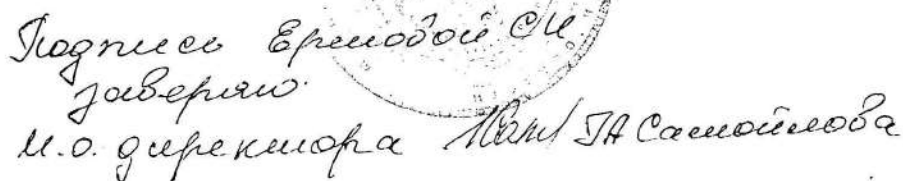 Подпись Ермовой С.И.
заверяю
И.о. директора Т.А Самойлова